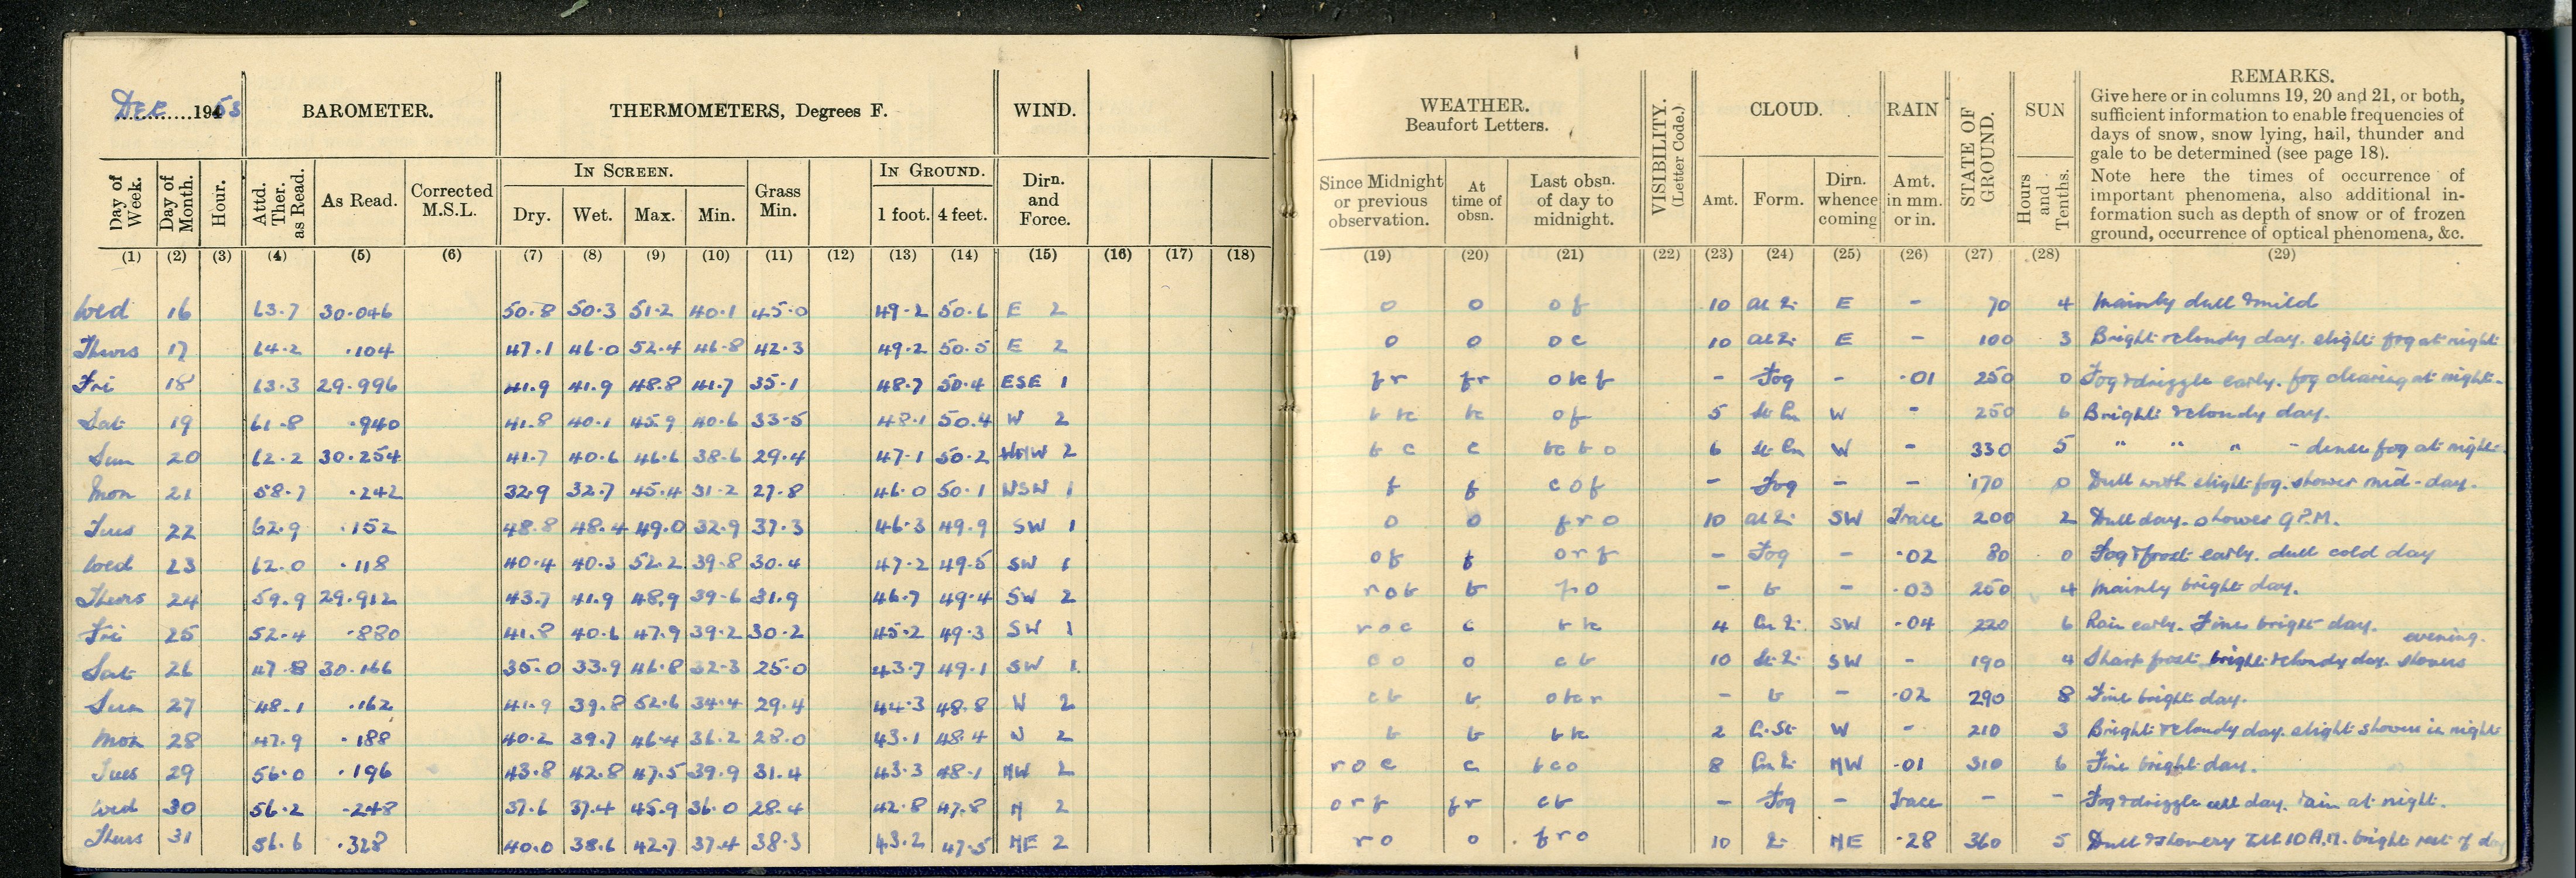 DEC 1953
BAROMETER.
THERMOMETERS, Degrees F.
WIND.
WEATHER.
Beaufort Letters.
VISIBILITY.
(Letter Code.)
CLOUD.
RAIN
STATE OF
GROUND.
SUN
REMARKS.
Give here or in columns 19, 20 and 21, or both,
sufficient information to enable frequencies of
days of snow, snow lying, hail, thunder and
gale to be determined (see page 18).
Note here the times of occurrence of
important phenomena, also additional in-
formation such as depth of snow or of frozen
ground, occurrence of optical phenomena, &c.
Day of Week. Day of Month. Hour. Attd. Ther. as Read. As Read. Corrected M.S.L. IN SCREEN. Dry. Wet. Max. Min. Grass Min. IN GROUND. 1 foot. 4 feet. Dirn. and Force.
Since Midnight or previous observation. At time of obsn. Last obsn. of day to midnight. Amt. Form. Dirn. whence coming Amt. in mm. or in. Hours and Tenths.
(1) (2) (3) (4) (5) (6) (7) (8) (9) (10) (11) (12) (13) (14) (15) (16) (17) (18) (19) (20) (21) (22) (23) (24) (25) (26) (27) (28) (29)
Wed 16 63.7 30.046 50.8 50.3 51.2 40.1 45.0 49.2 50.6 E 2 o o o f 10 E - 70 4 Mainly dull & mild
Thurs 17 64.2 .104 47.1 46.0 52.4 46.8 42.3 49.2 50.5 E 2 o o o c 10 E - 100 3 Bright & cloudy day. slight fog at night
Fri 18 63.3 29.996 41.9 41.9 48.8 41.7 35.1 48.7 50.4 ESE 1 fr fr - Fog - .01 250 0 Fog & drizzle early. fog clearing at night.
Sat 19 61.8 .940 41.8 40.1 45.9 40.6 33.5 48.1 50.4 W 2 o f 5 W - 250 6 Bright & cloudy day.
Sun 20 62.2 30.254 41.7 40.6 46.6 38.6 29.4 47.1 50.2 WNW 2 b c c bc b o 6 W - 330 5 " " " - dense fog at night.
Mon 21 58.7 .242 32.9 32.7 45.4 31.2 27.8 46.0 50.1 WSW 1 f f c o f - Fog - - 170 0 Dull with slight fog. shower mid-day.
Tues 22 62.9 .152 48.8 48.4 49.0 32.9 37.3 46.3 49.9 SW 1 o o f r o 10 SW Trace 200 2 Dull day. shower 9 P.M.
Wed 23 62.0 .118 40.4 40.3 52.2 39.8 30.4 47.2 49.5 SW 1 o f f o r f - Fog - .02 80 0 Fog & frost early. dull cold day
Thurs 24 59.9 29.912 43.7 41.9 48.9 39.6 31.9 46.7 49.4 SW 2 r o b b - b - .03 250 4 Mainly bright day.
Fri 25 52.4 .880 41.8 40.6 47.9 39.2 30.2 45.2 49.3 SW 1 r o c c 4 SW .04 220 6 Rain early. Fine bright day.
Sat 26 47.8 30.166 35.0 33.9 46.8 32.3 25.0 43.7 49.1 SW 1 c o o c b 10 SW - 190 4 Sharp frost. bright & cloudy day. showers evening.
Sun 27 48.1 .162 41.9 39.8 52.6 34.4 29.4 44.3 48.8 W 2 c b b - b - .02 290 8 Fine bright day.
Mon 28 47.9 .188 40.2 39.7 46.4 36.2 28.0 43.1 48.4 2 b b 2 W - 210 3 Bright & cloudy day. slight showers in night
Tues 29 56.0 .196 43.8 42.8 47.5 39.9 31.4 43.3 48.1 NW 2 r o c c b c o 8 NW .01 310 6 Fine bright day.
Wed 30 56.2 .248 37.6 37.4 45.9 36.0 28.4 42.8 47.8 N 2 o r f fr c b - Fog - Trace - - Fog & drizzle all day. rain at night.
Thurs 31 56.6 .328 40.0 38.6 42.7 37.4 38.3 43.2 47.5 NE 2 r o o f r o 10 NE .28 360 5 Dull & showery till 10 A.M. bright rest of day